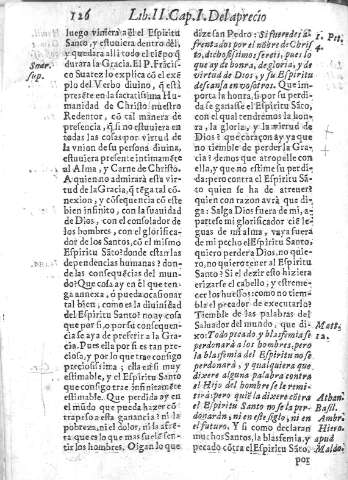 126 Lib. II. Cap. I. Del aprecio
luego viniera âl el Espiritu
Santo, y estuviera dentro dèl,
y quedara alli todo el tiẽpo q̃
durara la Gracia. El P. Frãcis-
Suar. sup.
co Suarez lo explica cõ el exẽ-
plo del Verbo divino, q̃ està
presẽte en la sactissima Hu-
manidad de Christo nuestro
Redentor, cõ tal manera de
presencia, q̃ si no estuviera en
todas las cosas por virtud de
la vnion de su persona divina,
estuviera presente intimamẽte
al Alma, y Carne de Christo.
A quien no admirarà esta vir-
tud de la Gracia, q̃ tẽga tal cõ-
nexion, y cõsequencia cõ este
bien infinito, con la suavidad
de Dios, con el consolador de
los hombres, con el glorifica-
dor de los Santos, cõ el mismo
Espiritu Sãto? donde estàn las
dependencias humanas? don-
de las consequẽcias del mun-
do? Que cosa ay en èl que ten-
ga annexa, ò pueda ocasionar
tal bien, como es la divinidad
del Espiritu Santo? no ay cosa
que por si, o por su consequen-
cia se aya de preferir a la Gra-
cia. Pues ella por si es tan pre-
ciosa, y por lo que trae consigo
preciosissima; ella en si es muy
estimable, y el Espiritu Santo
que consigo trae infinitamẽte
estimable. Que perdida ay en
el mũdo que pueda hazer cõ-
trapeso a esta ganancia? ni la
pobreza, ni el dolor, ni la afrẽ-
ta, que es lo que mas suelẽ sen-
tir los hombres. Oigan lo que
dize san Pedro: Si fueredes a-
frentados por el nõbre de Chris-
1. Pet. 4.
to, dichosissimos sereis, pues lo
que ay de honra, de gloria, y de
virtud de Dios, y su Espiritu
descansa en vosotros. Que im-
porta la honra, si por su perdi-
da se ganasse el Espiritu Sãto,
con el qual tendremos la hon-
ra, la gloria, y la virtud de
Dios? que coraçon ay ya que
no tiemble de perder la Gra-
cia? demos que atropelle con
ella, y que no estime su perdi-
da; pero contra el Espiritu Sã-
to quien se ha de atrever?
quien con razon avrà que di-
ga: Salga Dios fuera de mi, a-
partese mi glorificador ciẽ le-
guas de mi alma, vaya fuera
de mi pecho el Espiritu Sãto;
quiero perder a Dios, no quie-
ro, no quiero tener al Espiritu
Santo? Si el dezir esto hiziera
erizarse el cabello, y estreme-
cer los huessos; como no tiem-
bla el pecador de executarlo?
Tiemble de las palabras del
Salvador del mundo, que di-
Matt.
xo: Todo pecado y blasfemia se
perdonarà a los hombres, pero
la blasfemia del Espiritu no se
perdonarà, y qualquiera que
dixere alguna palabra contra
el Hijo del hombre se le remi-
tirà; pero quiẽ la dixere cõtra
Athan.
el Espiritu Santo no se la per-
Basil.
donaràn, ni en este siglo, ni en
Ambr.
el futuro. Y si como declaran
Hiero.
muchos Santos, la blasfemia, y
apud
pecado cõtra el Espiritu Sãto,
Maldo.
por